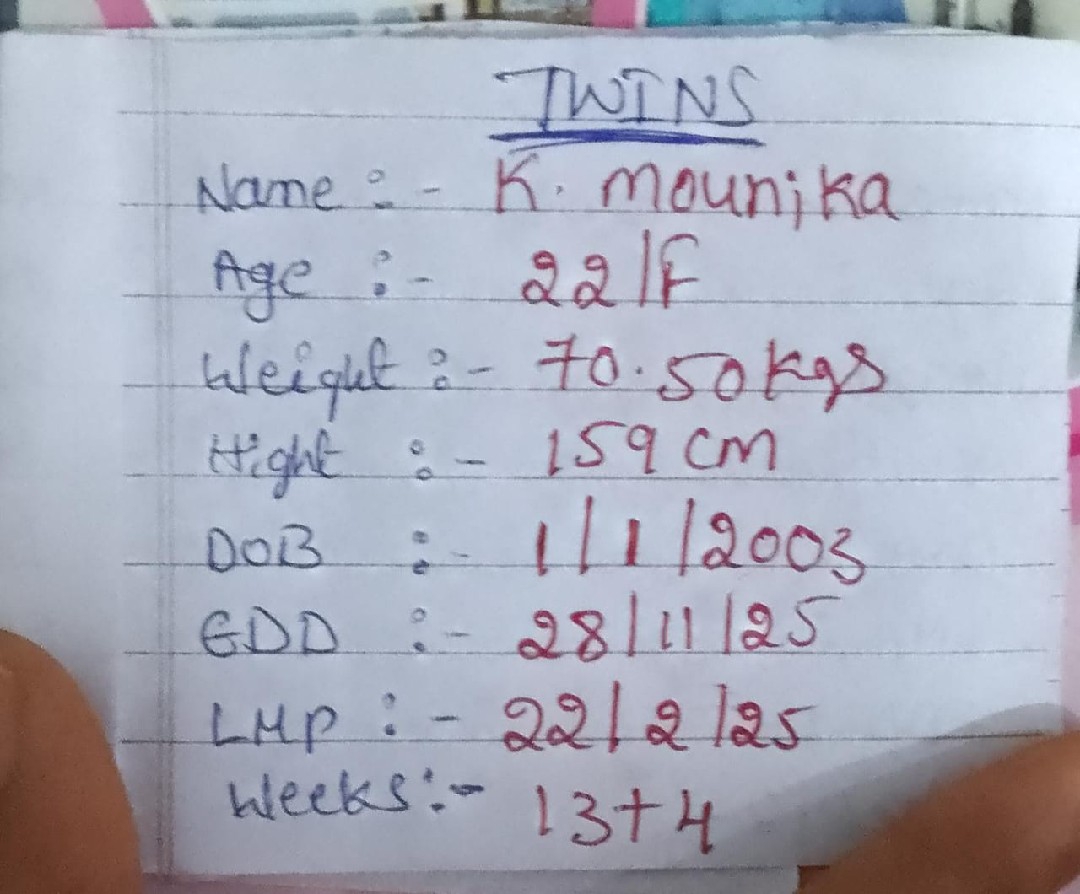 TWINS
Name :- K. Mounika
Age :- 22/F
Weight :- 70.50 kgs
Hight :- 159 cm
DOB :- 1/1/2003
EDD :- 28/11/25
LMP :- 22/2/25
Weeks :- 13+4